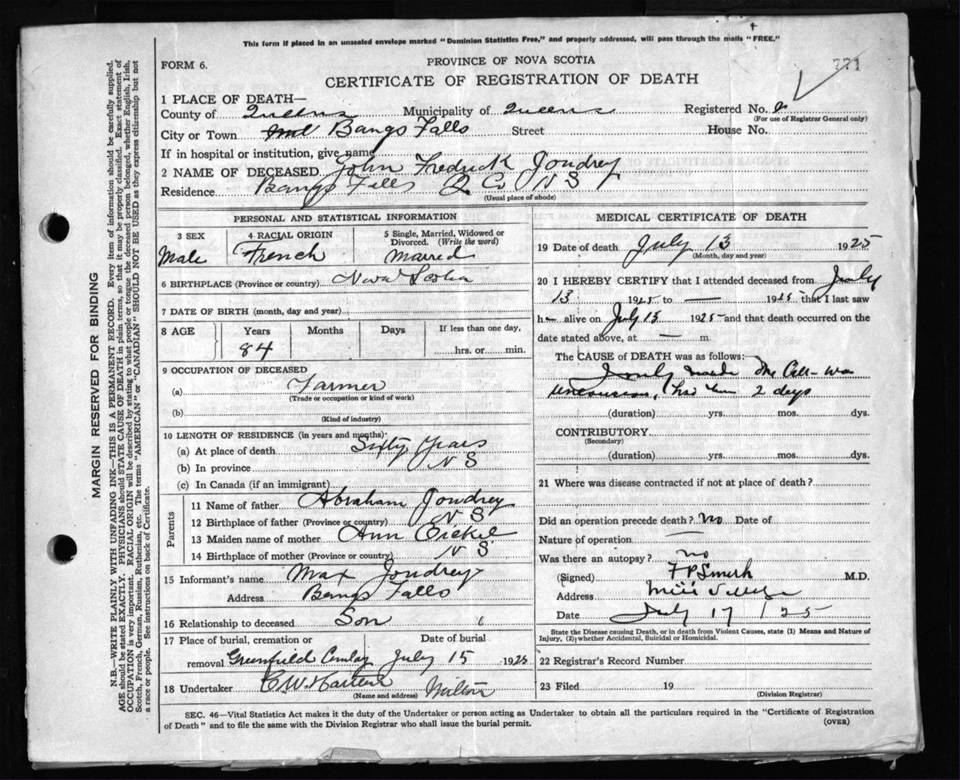 This form if placed in an unsealed envelope marked "Dominion Statistics Free," and properly addressed, will pass through the mails "FREE."
FORM 6.
PROVINCE OF NOVA SCOTIA
771
CERTIFICATE OF REGISTRATION OF DEATH
1 PLACE OF DEATH—
County of Queens Municipality of Queens Registered No.
(For use of Registrar General only)
City or Town Bangs Falls Street House No.
If in hospital or institution, give name
2 NAME OF DECEASED John Fredrick Joudrey
Residence Bangs Falls Q Co N S
(Usual place of abode)
PERSONAL AND STATISTICAL INFORMATION
3 SEX 4 RACIAL ORIGIN 5 Single, Married, Widowed or Divorced. (Write the word)
Male French Married
6 BIRTHPLACE (Province or country) Nova Scotia
7 DATE OF BIRTH (month, day and year)
8 AGE Years Months Days If less than one day,
84 hrs. or min.
9 OCCUPATION OF DECEASED
(a) Farmer
(Trade or occupation or kind of work)
(b)
(Kind of industry)
10 LENGTH OF RESIDENCE (in years and months):
(a) At place of death Sixty Years
(b) In province N S
(c) In Canada (if an immigrant)
Parents
11 Name of father Abraham Joudrey
12 Birthplace of father (Province or country) N S
13 Maiden name of mother Ann
14 Birthplace of mother (Province or country) N S
15 Informant's name Max Joudrey
Address Bangs Falls
16 Relationship to deceased Son
17 Place of burial, cremation or Date of burial
removal Greenfield July 15 1925
18 Undertaker C W
(Name and address) Milton
MEDICAL CERTIFICATE OF DEATH
19 Date of death July 13 1925
(Month, day and year)
20 I HEREBY CERTIFY that I attended deceased from July
13 1925 to — 1925 that I last saw
h— alive on July 13 1925 and that death occurred on the
date stated above, at — m.
The CAUSE OF DEATH was as follows:
I only made one Call - was
2 days
(duration) yrs. mos. dys.
CONTRIBUTORY
(Secondary)
(duration) yrs. mos. dys.
21 Where was disease contracted if not at place of death?
Did an operation precede death? no Date of
Nature of operation —
Was there an autopsy? no
(Signed) F P Smith M.D.
Address Mill Village
Date July 17 / 25
State the Disease causing Death, or in death from Violent Causes, state (1) Means and Nature of
Injury, (2) whether Accidental, Suicidal or Homicidal.
22 Registrar's Record Number
23 Filed 19
(Division Registrar)
SEC. 46—Vital Statistics Act makes it the duty of the Undertaker or person acting as Undertaker to obtain all the particulars required in the "Certificate of Registration
of Death" and to file the same with the Division Registrar who shall issue the burial permit. (OVER)
MARGIN RESERVED FOR BINDING
N.B.—WRITE PLAINLY WITH UNFADING INK—THIS IS A PERMANENT RECORD. Every item of information should be carefully supplied.
AGE should be stated EXACTLY. PHYSICIANS should STATE CAUSE OF DEATH in plain terms, so that it may be properly classified. Exact statement of
OCCUPATION is very important. RACIAL ORIGIN will be described by stating to what people or tongue the deceased person belonged, whether English, Irish,
Scotch, French, German, Russian, Ruthenian, etc. The terms "AMERICAN" or "CANADIAN" SHOULD NOT BE USED as they express citizenship but not
a race or people. See instructions on back of Certificate.